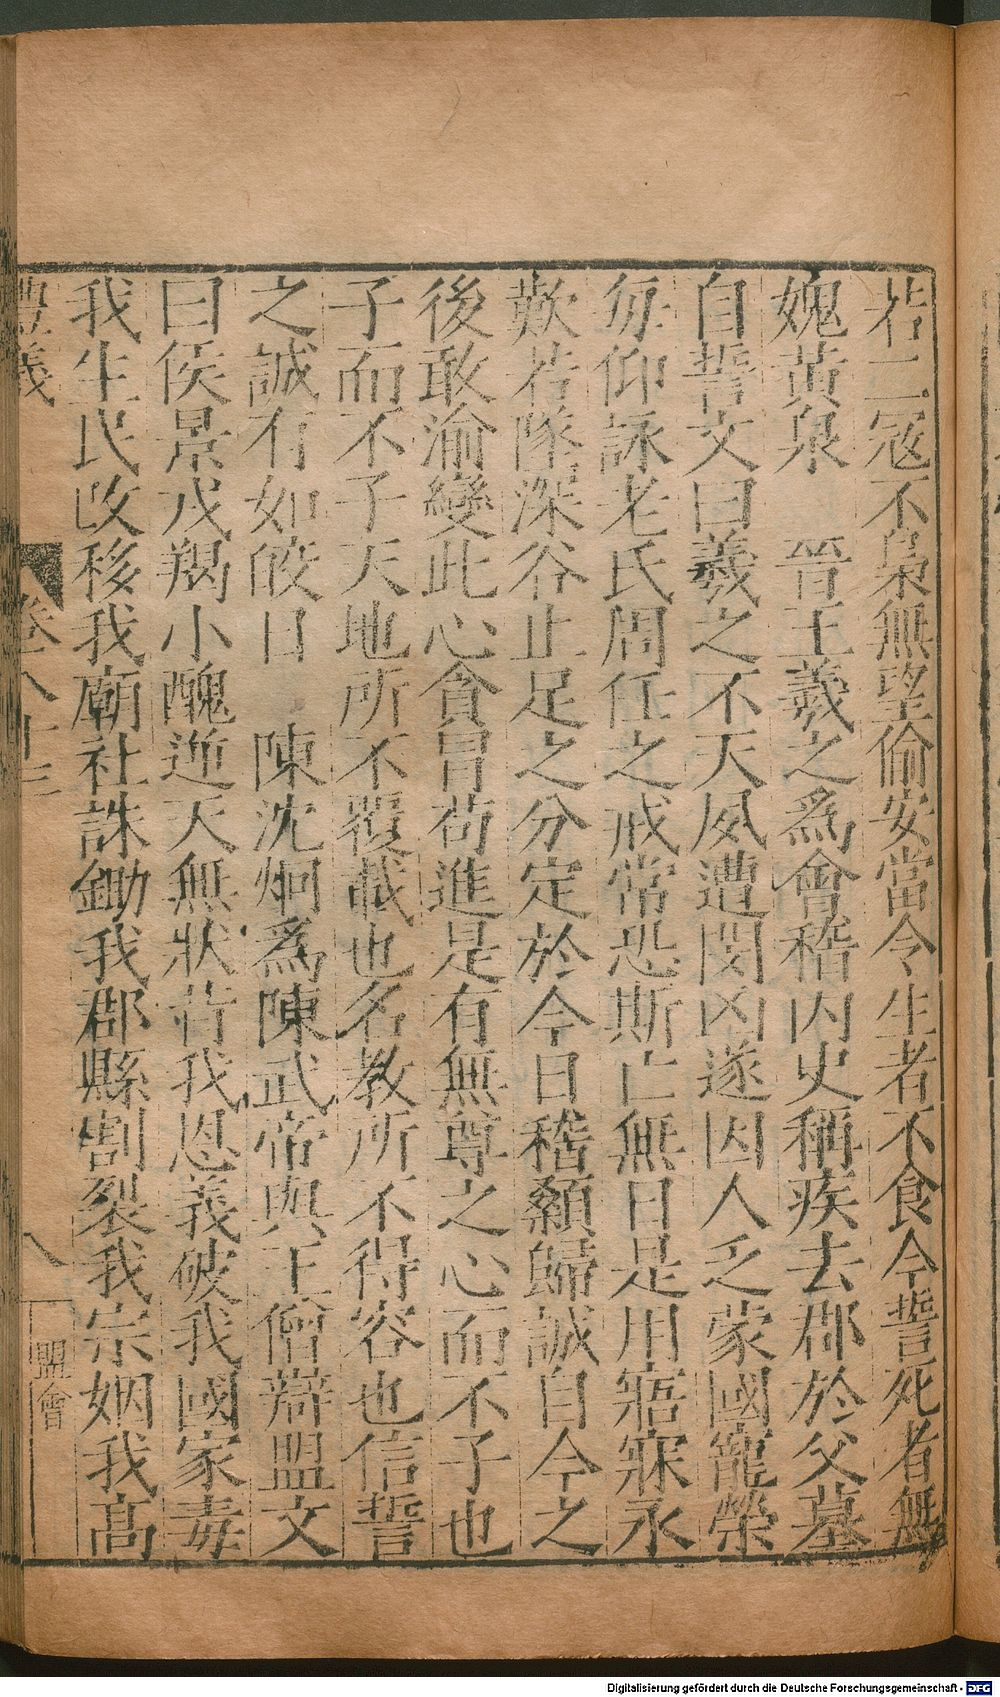 若二冦不梟無望偷安當令生者不食今誓死者無
媿黃泉　晉王羲之為會稽内史稱疾去郡於父墓
自誓文曰羲之不天夙遭閔凶遂因人乏蒙國寵榮
每仰詠老氏周任之戒常恐斯亡無日是用寤寐永
歎若墜深谷止足之分定於今日稽顙歸誠自今之
後敢渝變此心貪冒苟進是有無尊之心而不子也
子而不子天地所不覆載也名教所不得容也信誓
之誠有如皎日　陳沈炯為陳武帝與王僧辯盟文
曰侯景戎羯小醜逆天無狀背我恩義破我國家毒
我生民改移我廟社誅鋤我郡縣割裂我宗姻我高
卷八十三
八
盟會
Digitalisierung gefördert durch die Deutsche Forschungsgemeinschaft - DFG